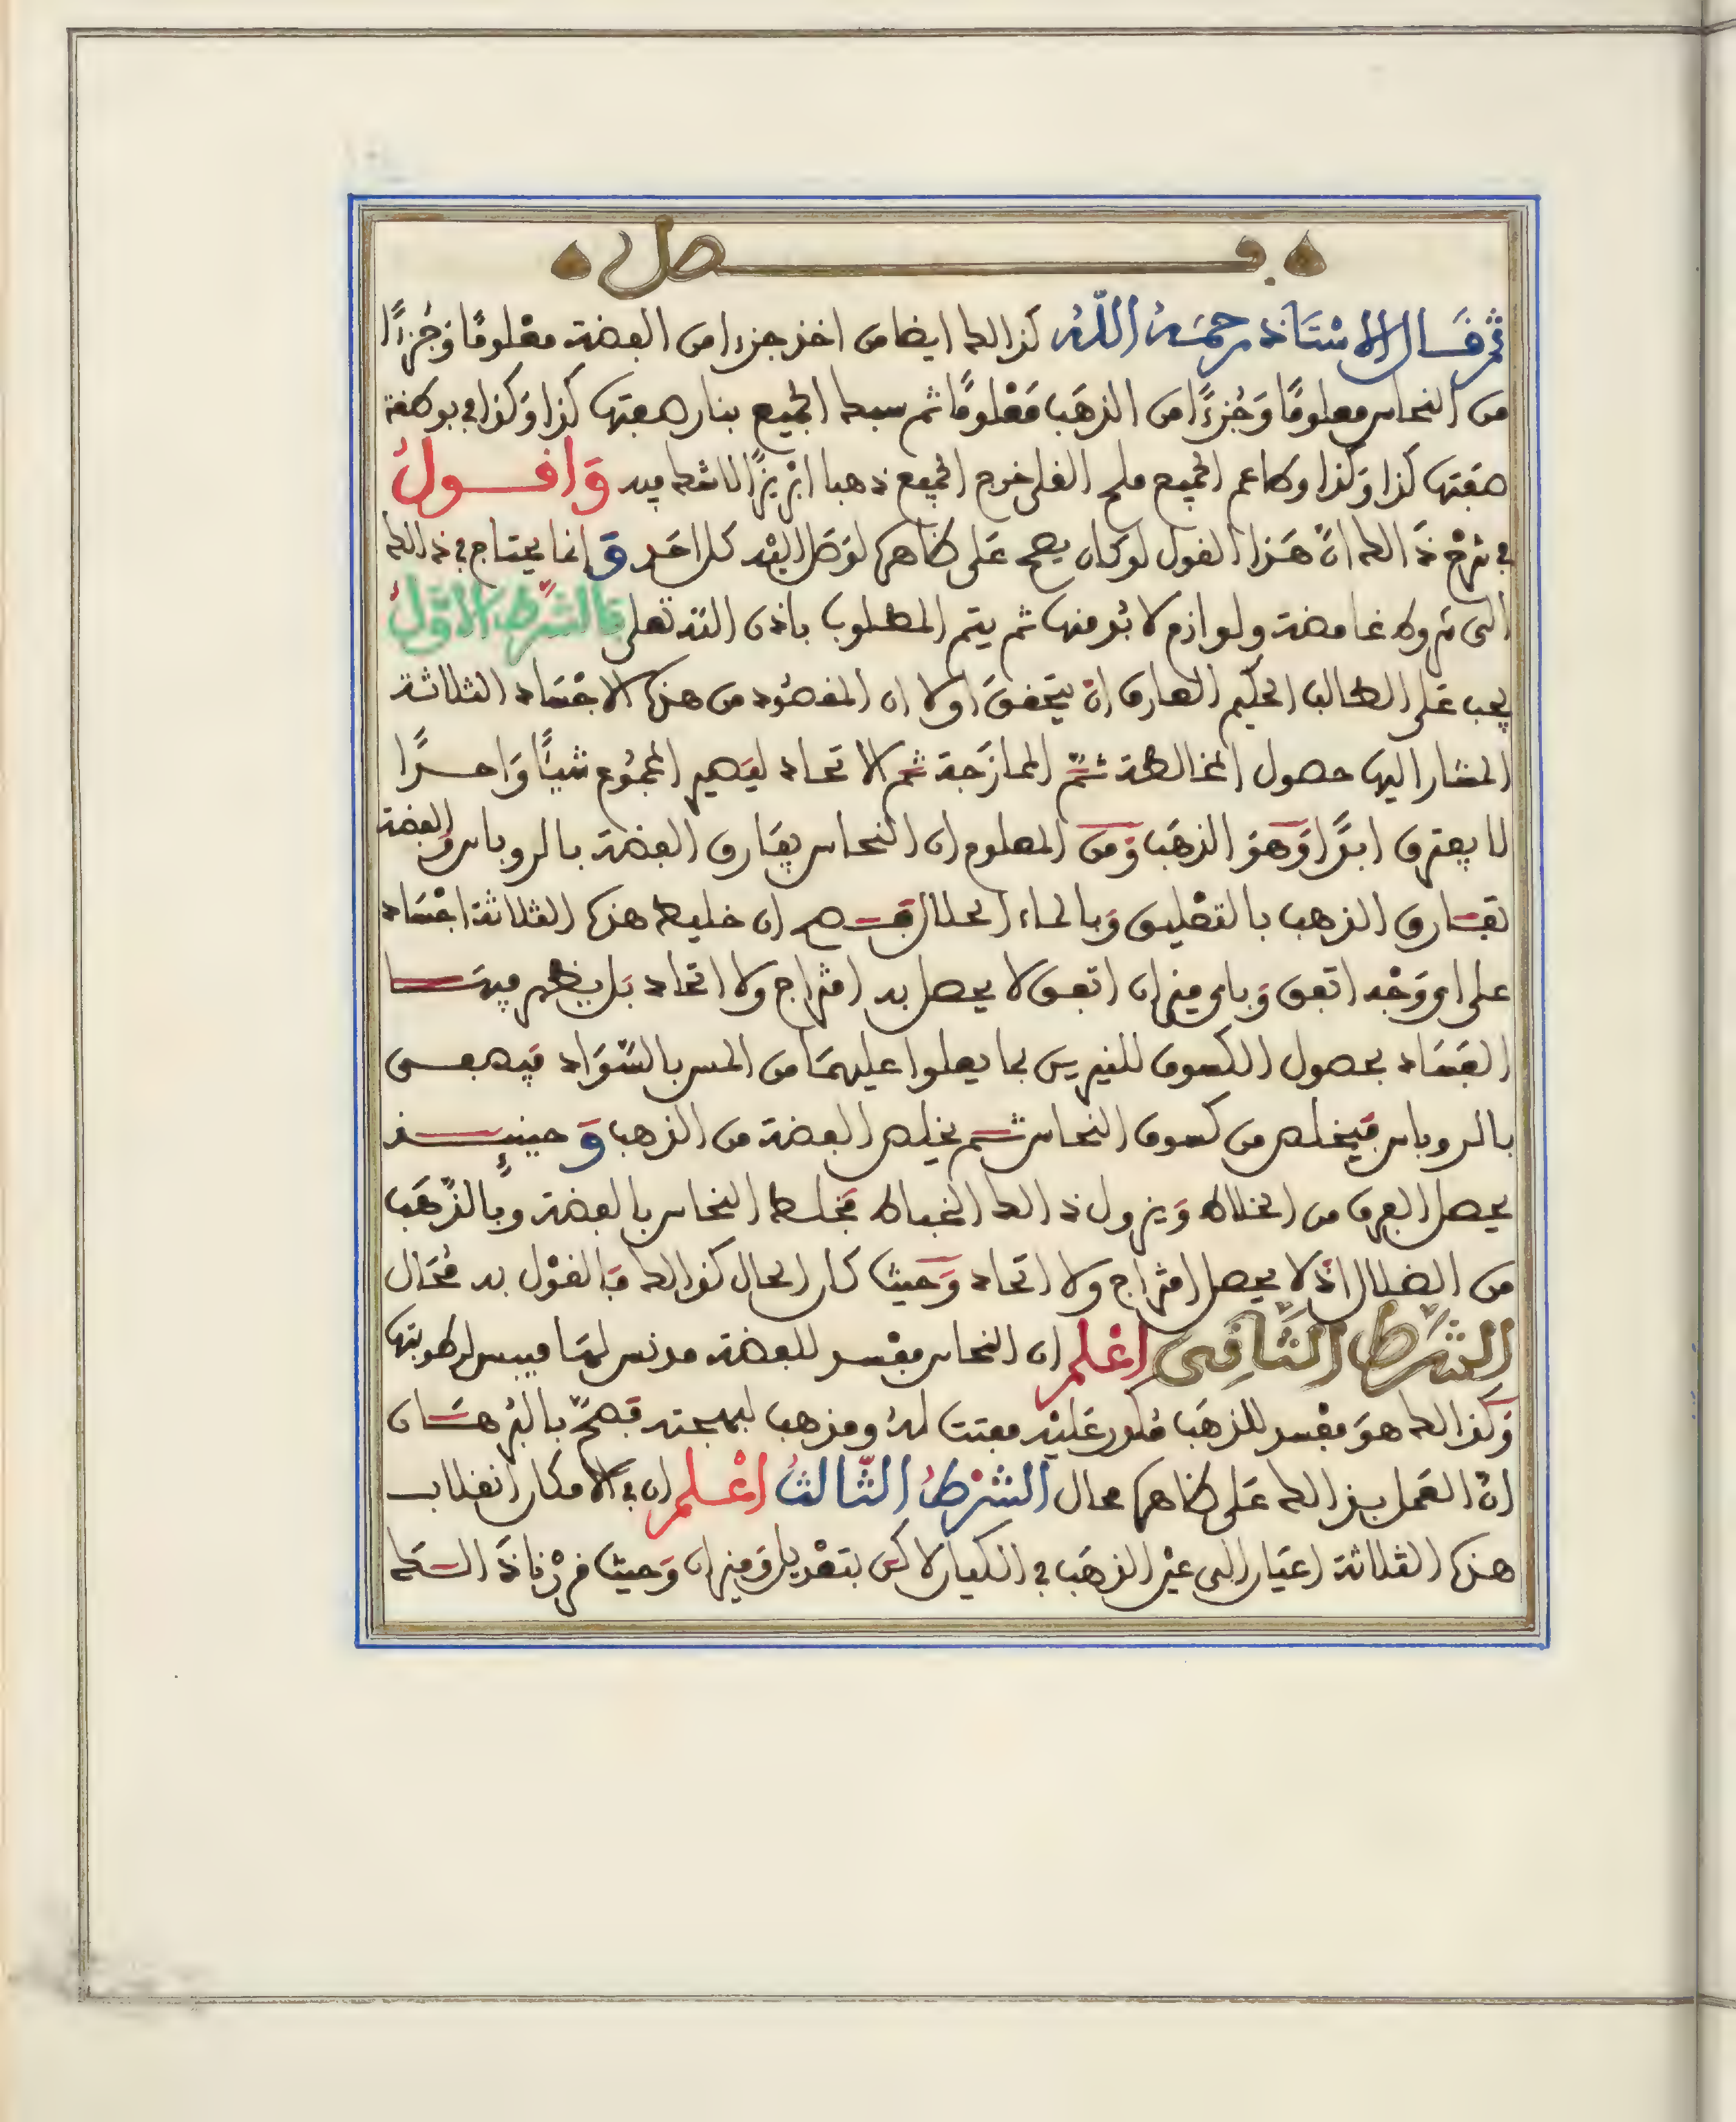 فصل
ثم قَال الاسْتَاذ رحمَهُ اللّهُ كذالك ايضا من اخذ جزءا من الفضة معْلومًا وَجُزءًا
من النحاس معلومًا وَجُزءًا من الذهَب مَعْلومًا ثم سبك الجميع بنار صفتها كذا وَكذا في بوطفة
صفَتها كذا وَكذا وطاعم الجميع ملح القلي خرج الجميع ذهبا ابْريزًا لا شك فيه وَاقول
في شرْح ذَالك انّ هَذا القول لو كان يصح عَلى ظاهره لوَصَل اليْه كل احَد وَانما يحتاج في ذالك
الى شروط غامضة ولوازم لا بُد منها ثم يتم المطلوب باذن الله تعلى فالشّرط الاوّلُ
يجب عَلى الطالب الحكيم العارف انْ يتَحققَ اولا ان المقصُود من هذه الاجْسَاد الثلاثة
المشار اليها حصول المخالطة ثمّ الممازَجة ثم الاتحاد ليَصير المجمُوع شيئًا وَاحدًا
لا يفترق ابدًا وَهوَ الذهَب وَمن المعلوم ان النحاس يفَارق الفضة بالروباس وَالفضة
تفَارق الذهب بالتعْليق وَبالماء الحلال فَصح ان خليط هذه الثلاثة اجْسَاد
على اي وَجْه اتفق وَباي ميزان اتفق لا يحصل به امتزاج ولا اتحاد بَل يظهر فيهَا
الفَسَاد بحصول الكسوف للنيرين بما يعلوا عليهمَا من المس بالسّوَاد فيصفى
بالروباس فيَخلص من كسوف النحاس ثم يخلص الفضة من الذهب وَحينئذ
يحصل الفرق من الخلاط وَيزول ذالك الخباط فَخلط النحاس بالفضة وبالذّهَب
من الضلال اذْ لا يحصل امتزاج ولا اتحاد وَحَيث كان الحال كذالك فَالقوْل به مُحَال
الشّرط الثّاني اعْلم ان النحاس مفْسد للفضة مدنس لهَا ميبس لرطوبتها
وَكذالك هوَ مفْسد للذهَب مُكدر عَليْه مفتت لهُ ومذهب لبهجته فَصحّ بالبُرهَان
انّ العَمل بذالك عَلى ظاهره محال الشّرْطُ الثّالثُ اعْلم ان في الامكان انقلاب
هذه الثلاثة اعيَان الى عيْن الذهَب في الكيان لاكن بتعْديل وَميزان وَحيث قررْنا ذَالكَ